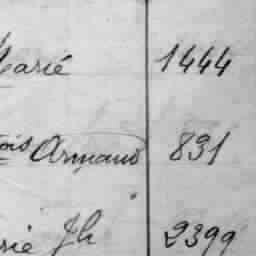 Marié 1444
ois Armand 831
rie Jh 2399